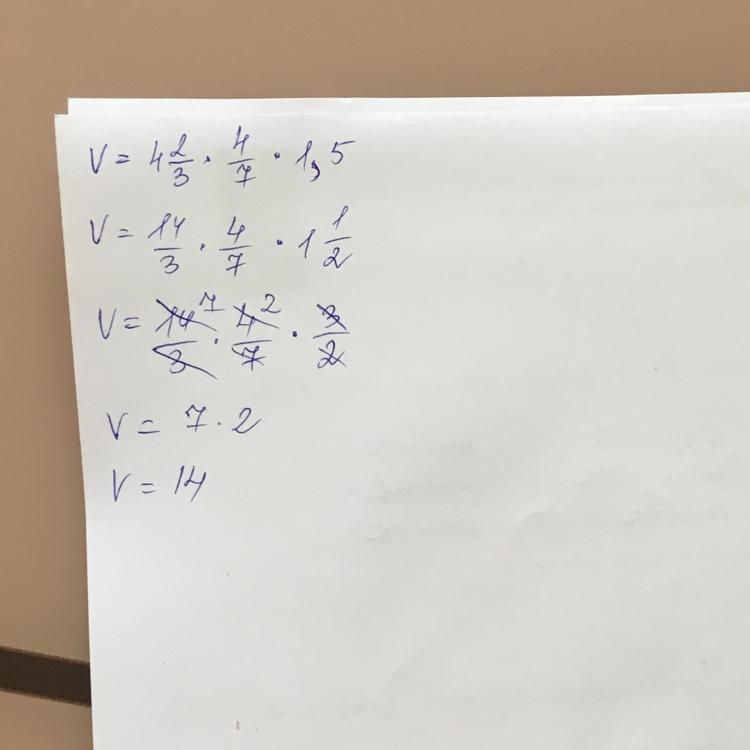 V = 4 2/3 · 4/7 · 1,5
V = 14/3 · 4/7 · 1 1/2
V = 14 7/3 · 4 2/7 · 3/2
V = 7 · 2
V = 14